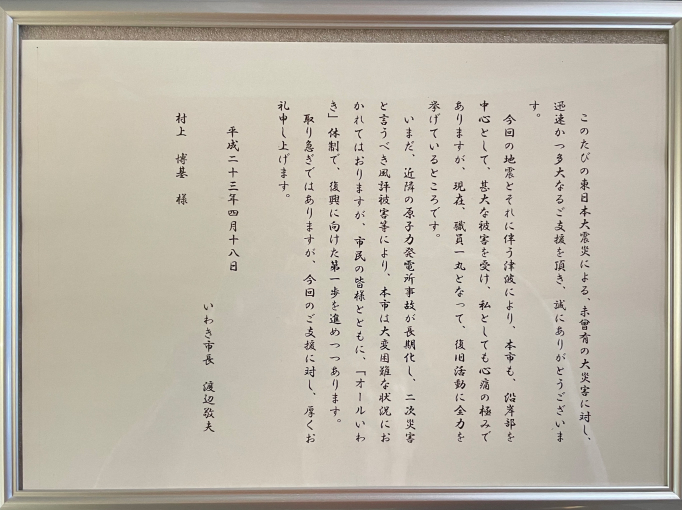 このたびの東日本大震災による、未曾有の大災害に対し、
迅速かつ多大なるご支援を頂き、誠にありがとうございま
す。
今回の地震とそれに伴う津波により、本市も、沿岸部を
中心として、甚大な被害を受け、私としても心痛の極みで
ありますが、現在、職員一丸となって、復旧活動に全力を
挙げているところです。
いまだ、近隣の原子力発電所事故が長期化し、二次災害
と言うべき風評被害等により、本市は大変困難な状況にお
かれてはおりますが、市民の皆様とともに、「オールいわ
き」体制で、復興に向けた第一歩を進めつつあります。
取り急ぎではありますが、今回のご支援に対し、厚くお
礼申し上げます。
平成二十三年四月十八日
いわき市長 渡辺敬夫
村上 博基 様